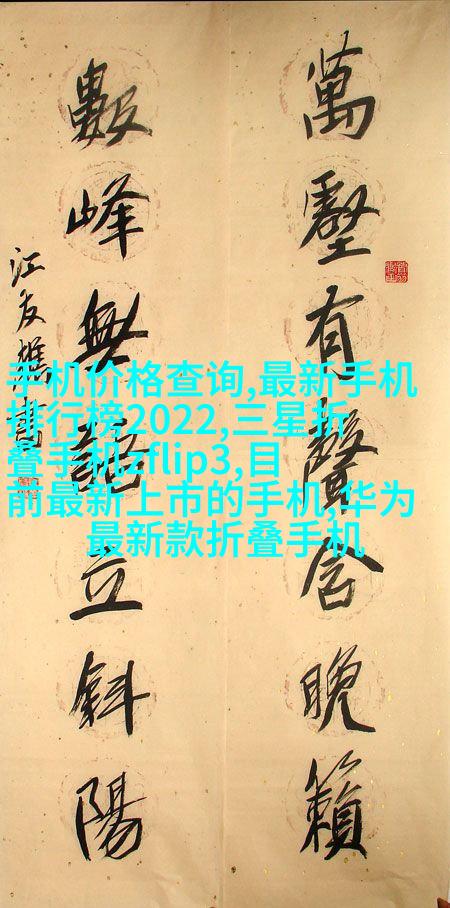 萬壑有聲含晚籟
數峰無語立斜陽
江友樵書
手机价格查询,最新手机
排行榜2022,三星折
叠手机zflip3,目
前最新上市的手机,华为
最新款折叠手机